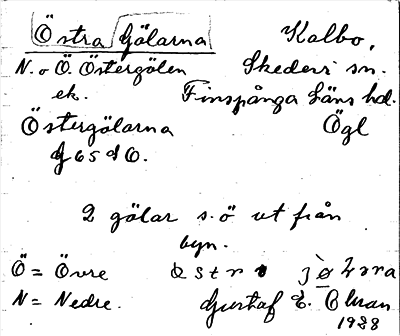 Östra Gölarna Kalbo,
N. o Ö. Östergölen Skedevi sn.
ek. Finspånga läns hd.
Östergölarna Ögl
J 65 d O.
2 gölar s. ö ut från
byn.
Ö = Övre
N = Nedre. Gustaf E.
1938